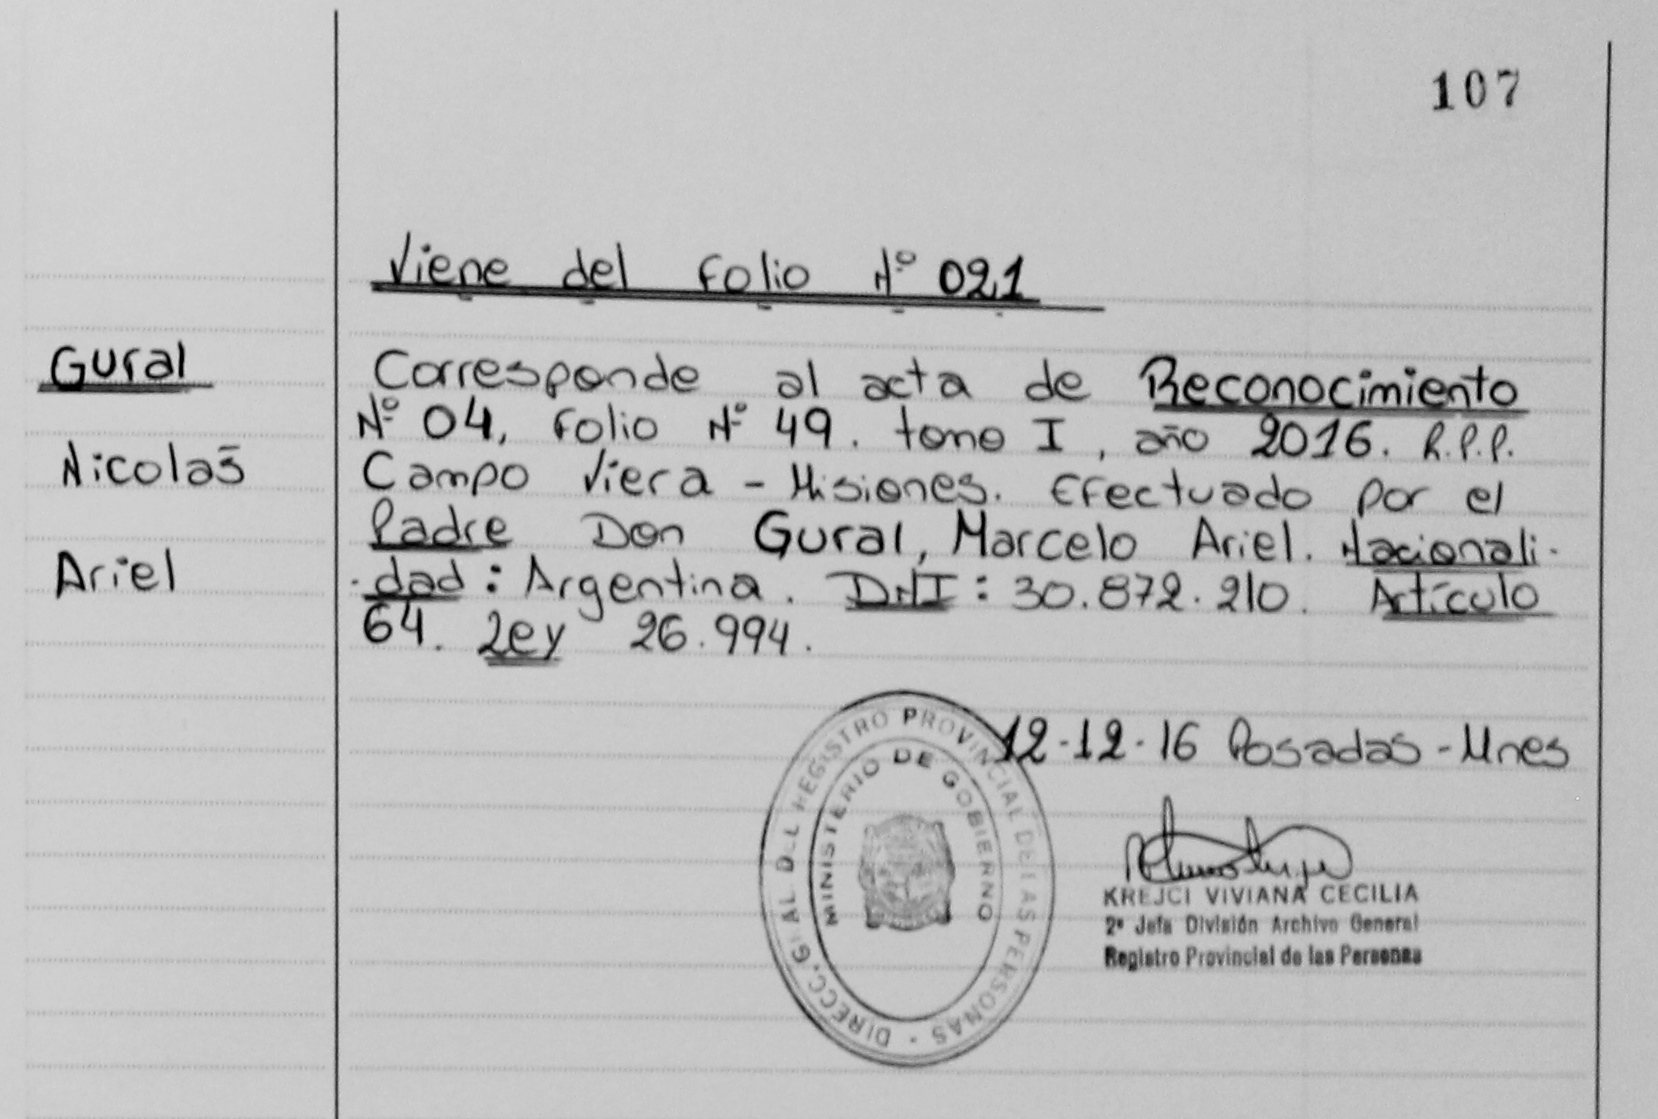 107
Viene del Folio Nº 021
Gural
Nicolás
Ariel
Corresponde al acta de Reconocimiento
Nº 04, Folio Nº 49. tomo I, año 2016. R.P.P.
Campo Viera - Misiones. Efectuado por el
Padre Don Gural, Marcelo Ariel. Nacionali-
-dad: Argentina. DNI: 30.872.210. Artículo
64. Ley 26.994.
12-12-16 Posadas - Mnes
DIRECC. GRAL DEL REGISTRO PROVINCIAL DE LAS PERSONAS -
MINISTERIO DE GOBIERNO
KREJCI VIVIANA CECILIA
2ª Jefa División Archivo General
Registro Provincial de las Personas